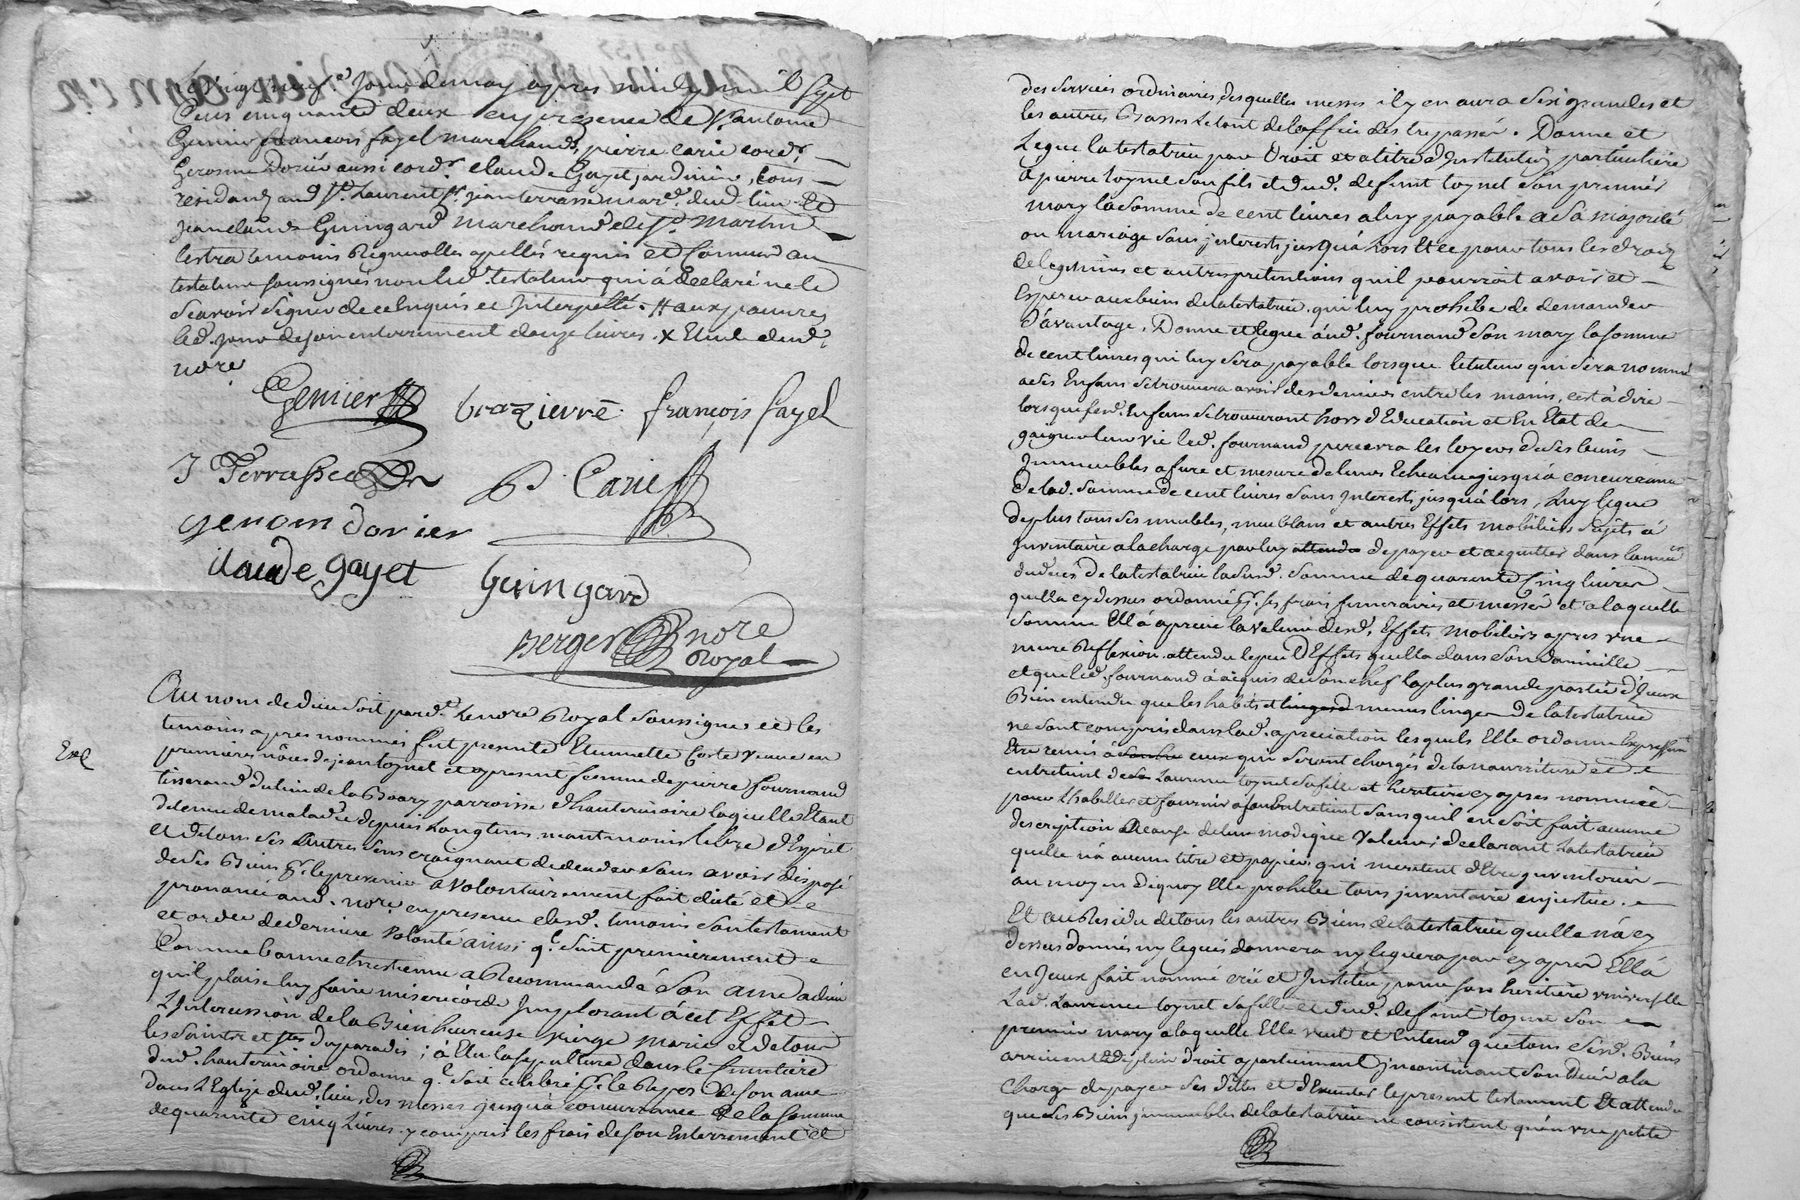 le vingt neuf.e Jour de may apres midy mil Sept
Cens cinquante deux en presence de S.r antoine
Genier francois fayel marchands, pierre carie cord.r
Gerosme Dorier aussi cord.r Claude Gayet jardinier, tous
residands aud S.t Laurent S.r jean terrasse mar.d dud. lieu et
jean claude Guingard marchand de S.t Martin
lestra temoins Requis et apellés
testateur soussignés non led. testateur qui a declaré ne le
Scavoir Signer de ce Enquis et Interpellé. # aux pauvres
led. jour de son enterrement douze livres. x Et led.
nore
Genier brazierre françois fayel
J Terrasse P. Carie
gerom dorier
claude gayet Guingard
Berger nore
Royal
Au nom de dieu soit pard.t le nore Royal soussigné et les
temoins apres nommés fut presente Etiennette Coste veuve en
Exp
premieres nôces de jean toynet et apresent femme de pierre fournand
tisserand du lieu de la Boary parroisse d'hauterivoire laquelle Etant
detenue de maladie depuis Longtems neantmoins libre d'Esprit
et de tous ses autres sens craignant de deceder sans avoir disposé
de ses Biens p.r le prevenir a volontairement fait dicté et
prononcé aud. nore en presence desd. temoins son testament
et ordre de derniere volonté ainsi q.l suit premierement
Comme bonne chrestienne a Recommandé Son ame a dieu
qu'il plaise luy faire misericorde Implorant à cet Effet
L'Intercession de la Bien heureuse vierge Marie et de tous
les saints et stes du paradis; à Elu la sepulture dans le Cimetiere
dud. hauterivoire ordonne q.l soit celebré p.r le Repos de son ame
dans L'Eglise dud. lieu, des messes jusqu'à concurrance de la somme
de quarante cinq Livres y compris les frais de son Enterrement et
des services ordinaires, desquelles messes il y en aura six grandes et
les autres Basses le tout de l'office des trepassés. Donne et
Legue la testatrice par droit et a titre d'Institution particuliere
a pierre toynet son fils et dud. defunt toynet son premier
mary la somme de cent livres a luy payable a sa majorité
ou mariage sans Interests jusqu'à lors Et ce pour tous les droits
de legitimes et autres pretentions qu'il pourroit avoir et
Esperer aux biens de la testatrice, qui luy prohibe de demander
d'avantage, Donne et legue aud. fournand son mary la somme
de cent livres qui luy sera payable lorsque le tuteur qui sera nommé
a ses Enfans se trouvera avoir des deniers entre les mains, c'est à dire
lorsque sesd. Enfans se trouveront hors d'Education et En Etat de
gaigner leur vie led. fournand percevra les loyers de ses biens
Immeubles a fure et mesure de leurs Echeances jusqu'à concurrance
de lad. somme de cent livres sans Interests jusqu'à lors, luy legue
de plus tous ses meubles, meublans et autres Effets mobiliers sujets à
Inventaire a la charge par luy de payer et acquitter dans l'année
du deces de la testatrice la susd. somme de quarante Cinq livres
quelle a cy dessus ordonné p.r ses frais funeraires et messes et a laquelle
somme Ella apreué la valeur desd. Effets mobiliers apres une
mure Reflexion attendu le peu d'Effets quella dans son domicille
et que led. fournand à acquis de son chef la plus grande partie d'Iceux
Bien entendu que les habits et menus linges de la testatrice
ne sont compris dans lad. apreciation lesquels Elle ordonne Expressement
Etre remis à ceux qui seront chargés de la nourriture et
entretient de Laurence toynet sa fille et heritiere cy apres nommée
pour L'habiller et fournir à son Entretient sans qu'il en soit fait aucune
description a cause de leur modique valeur; declarant La testatrice
quelle n'a aucun titre et papier qui meritent d'Etre Inventoriés
au moyen dequoy Elle prohibe tous Inventaire en justice.
Et au Residu de tous les autres Biens de la testatrice quelle n'a cy
dessus donnés ny legués donnera ny leguera par cy apres Ella
en Iceux fait nommé crée et Institué pour son heritiere universelle
Lad. Laurence toynet sa fille et dud. defunt toynet son
premier mary a laquelle Elle veut et Entend que tous sesd. Biens
arrivent et de plein droit apartiennent Incontinant son deces a la
Charge de payer ses dettes et d'Executer le present testament Et attendu
que ses Biens Immeubles de la testatrice ne consistent qu'en une petite